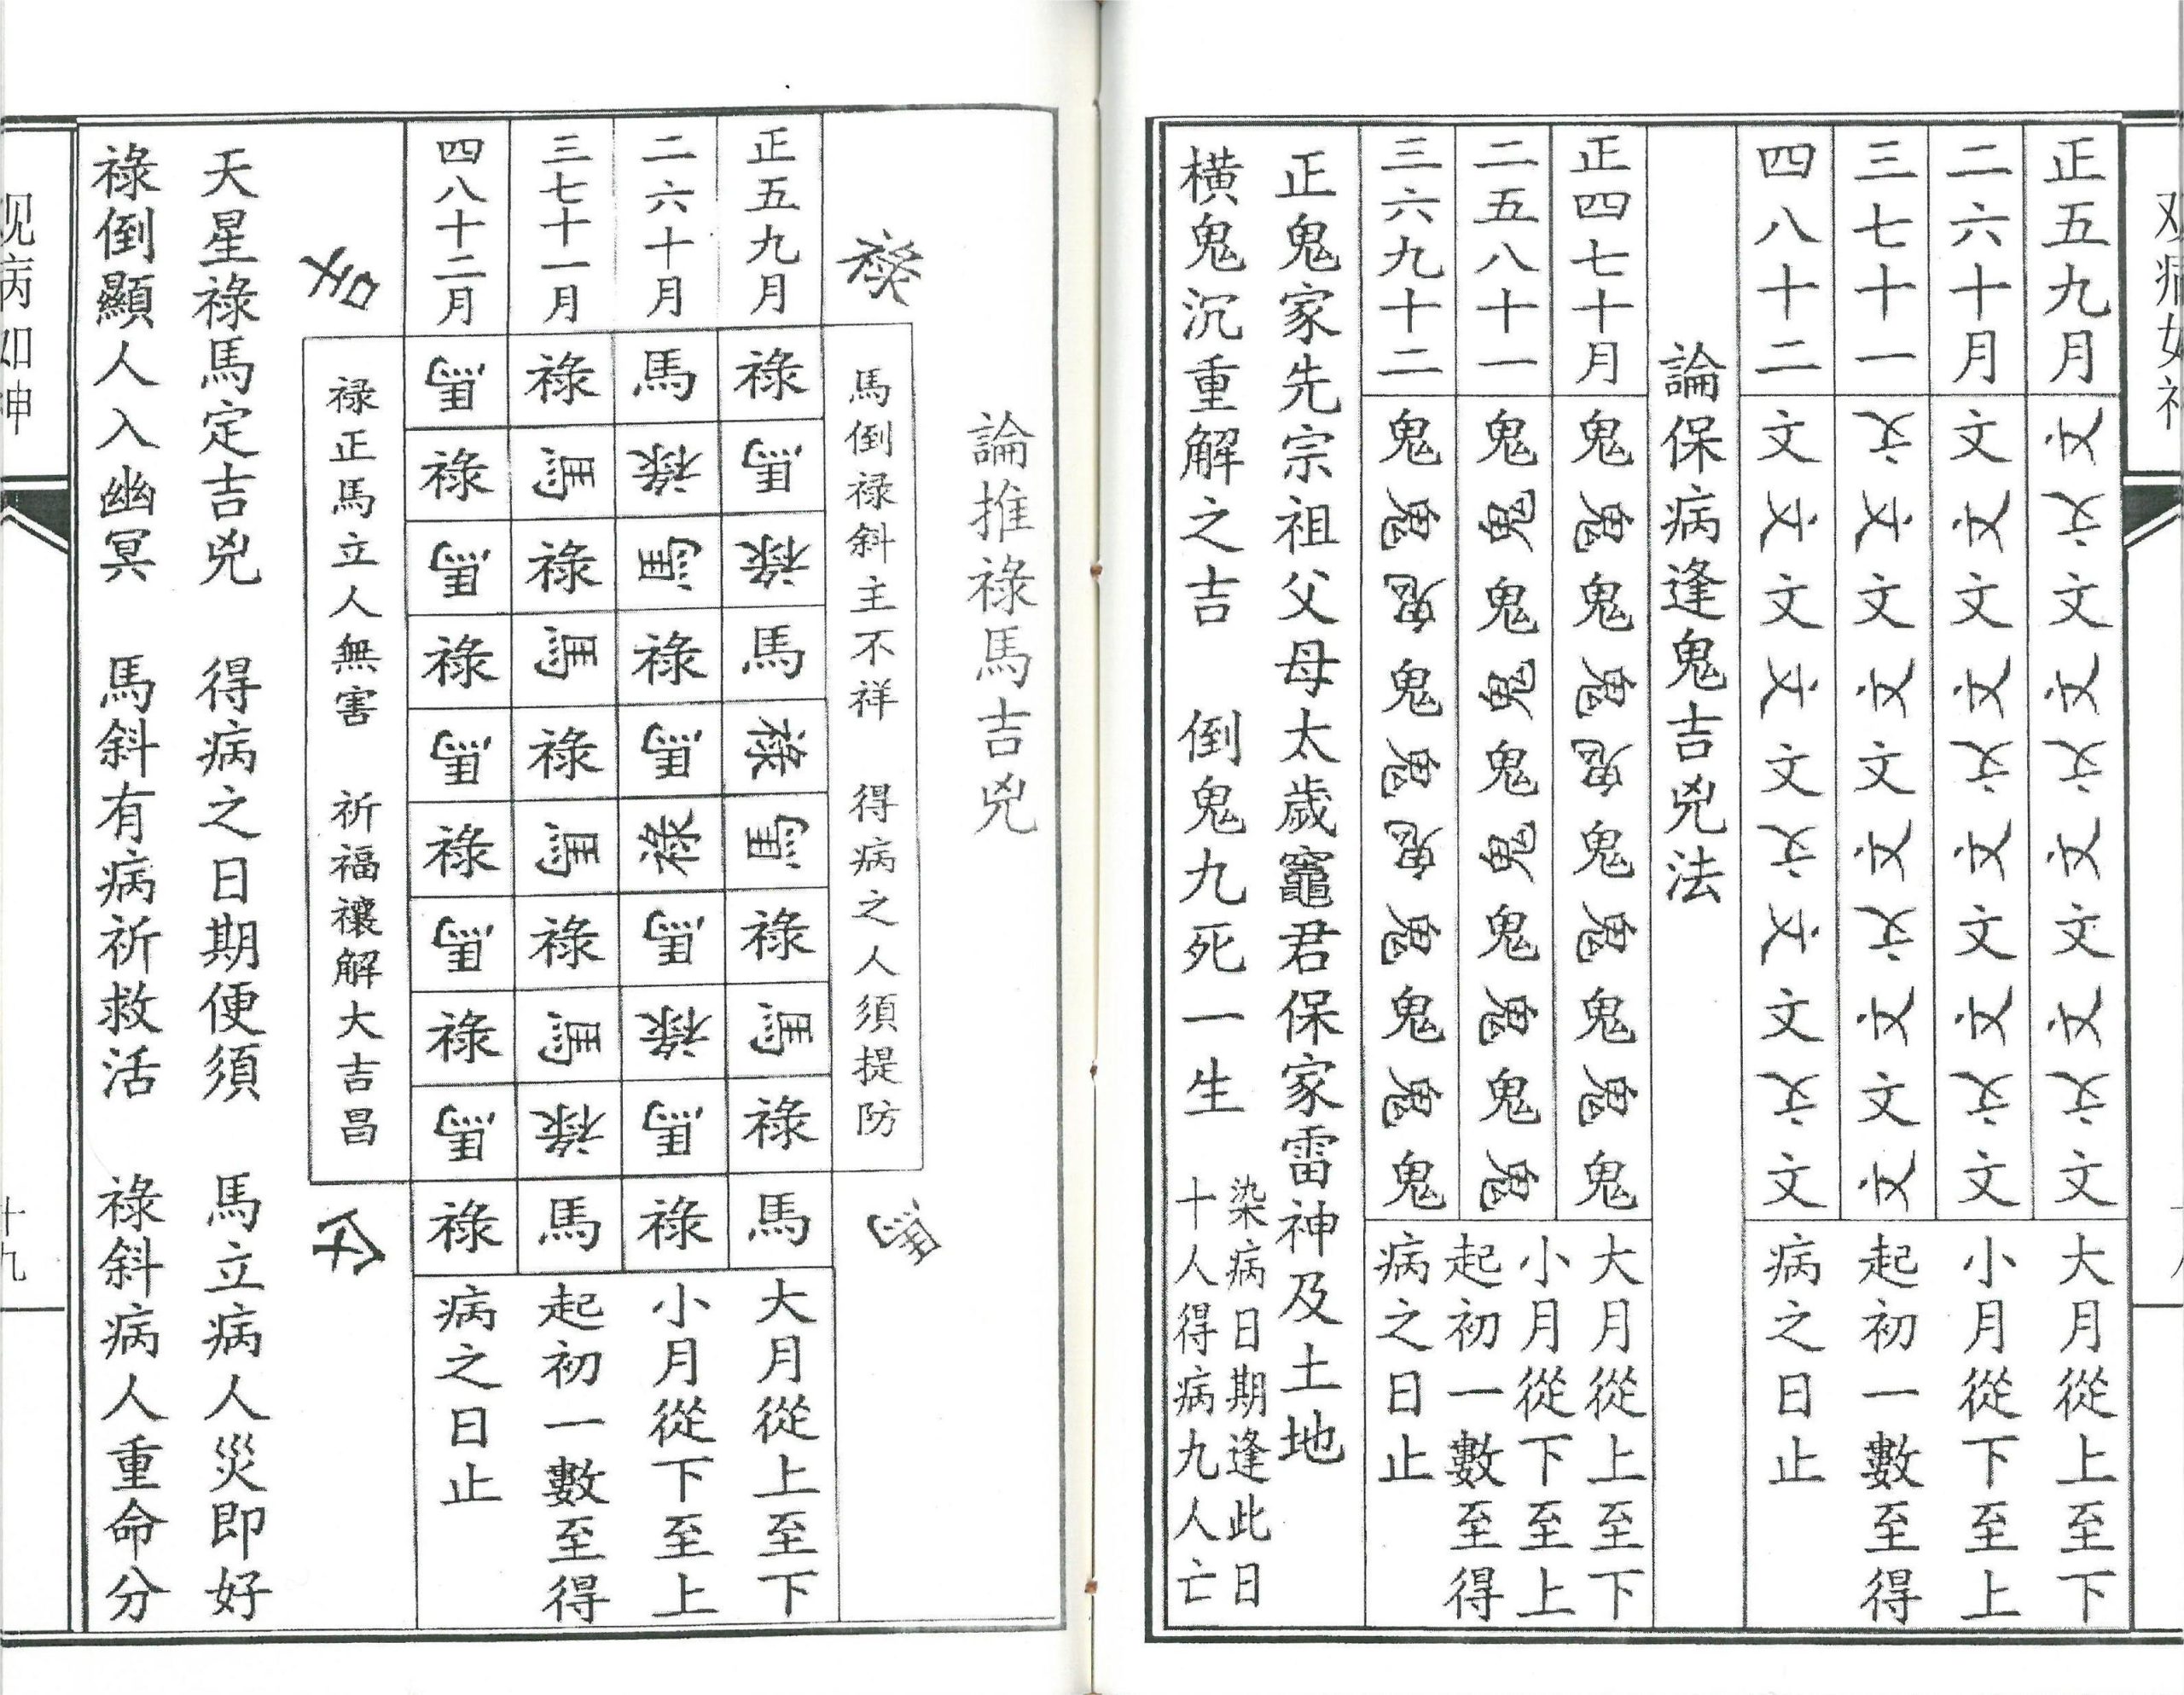 正五九月
文文文文文文文文文文
大月從上至下
二六十月
文文文文文文文文文文
小月從下至上
三七十一
文文文文文文文文文文
起初一數至得
四八十二
文文文文文文文文文文
病之日止
論保病逢鬼吉兇法
正四七十月
鬼鬼鬼鬼鬼鬼鬼鬼鬼鬼
大月從上至下
二五八十一
鬼鬼鬼鬼鬼鬼鬼鬼鬼鬼
小月從下至上
三六九十二
鬼鬼鬼鬼鬼鬼鬼鬼鬼鬼
起初一數至得
病之日止
正鬼家先宗祖父母太歲竈君保家雷神及土地
橫鬼沉重解之吉　倒鬼九死一生
染病日期逢此日
十人得病九人亡
論推祿馬吉兇
祿
馬倒禄斜主不祥　得病之人須提防
馬
正五九月
祿馬祿馬祿馬祿馬祿馬
大月從上至下
二六十月
馬祿馬祿馬祿馬祿馬祿
小月從下至上
三七十一月
祿馬祿馬祿馬祿馬祿馬
起初一數至得
四八十二月
馬祿馬祿馬祿馬祿馬祿
病之日止
吉
禄正馬立人無害　祈福禳解大吉昌
天星祿馬定吉兇　得病之日期便須　馬立病人災即好
祿倒顯人入幽冥　馬斜有病祈救活　祿斜病人重命分
观病如神
十九